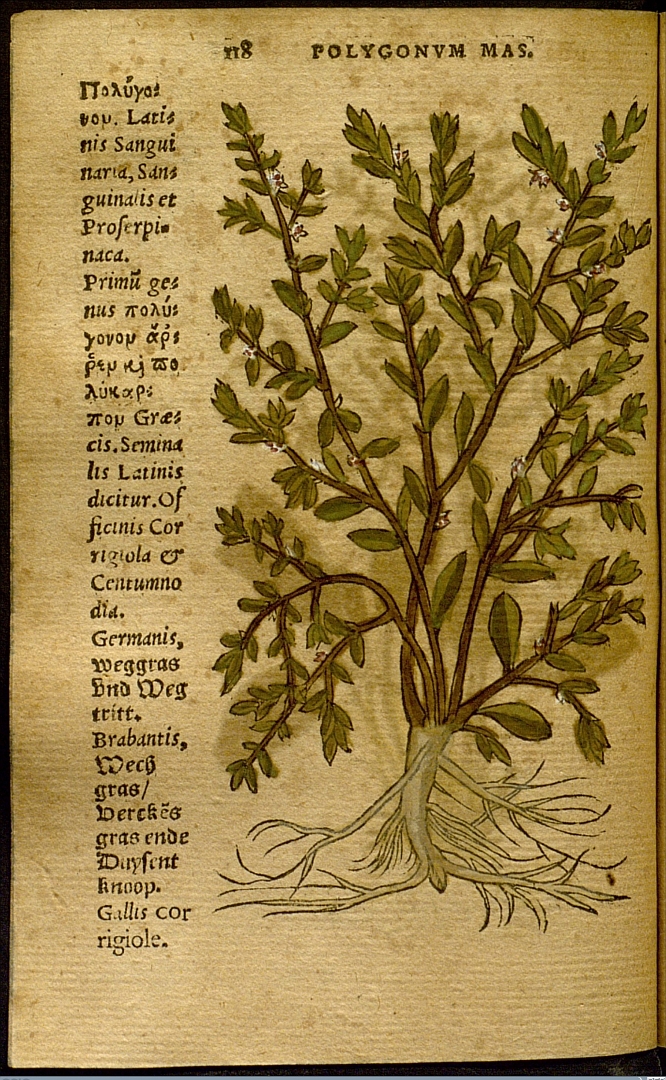 118 POLYGONVM MAS.
Πολύγο⸗
νομ. Lati⸗
nis Sangui
naria, San⸗
guinalis et
Proſerpi⸗
naca.
Primũ ge⸗
nus πολύ⸗
γονομ ἄῤ⸗
ῥεμ κỳ πο
λύκαρ⸗
πομ Græ⸗
cis. Semina
lis Latinis
dicitur. Of
ficinis Cor
rigiola &
Centumno
dia.
Germanis,
weggras
vnd Weg
tritt.
Brabantis,
Wech
gras/
Verckẽs
gras ende
Duyſent
knoop.
Gallis cor
rigiole.